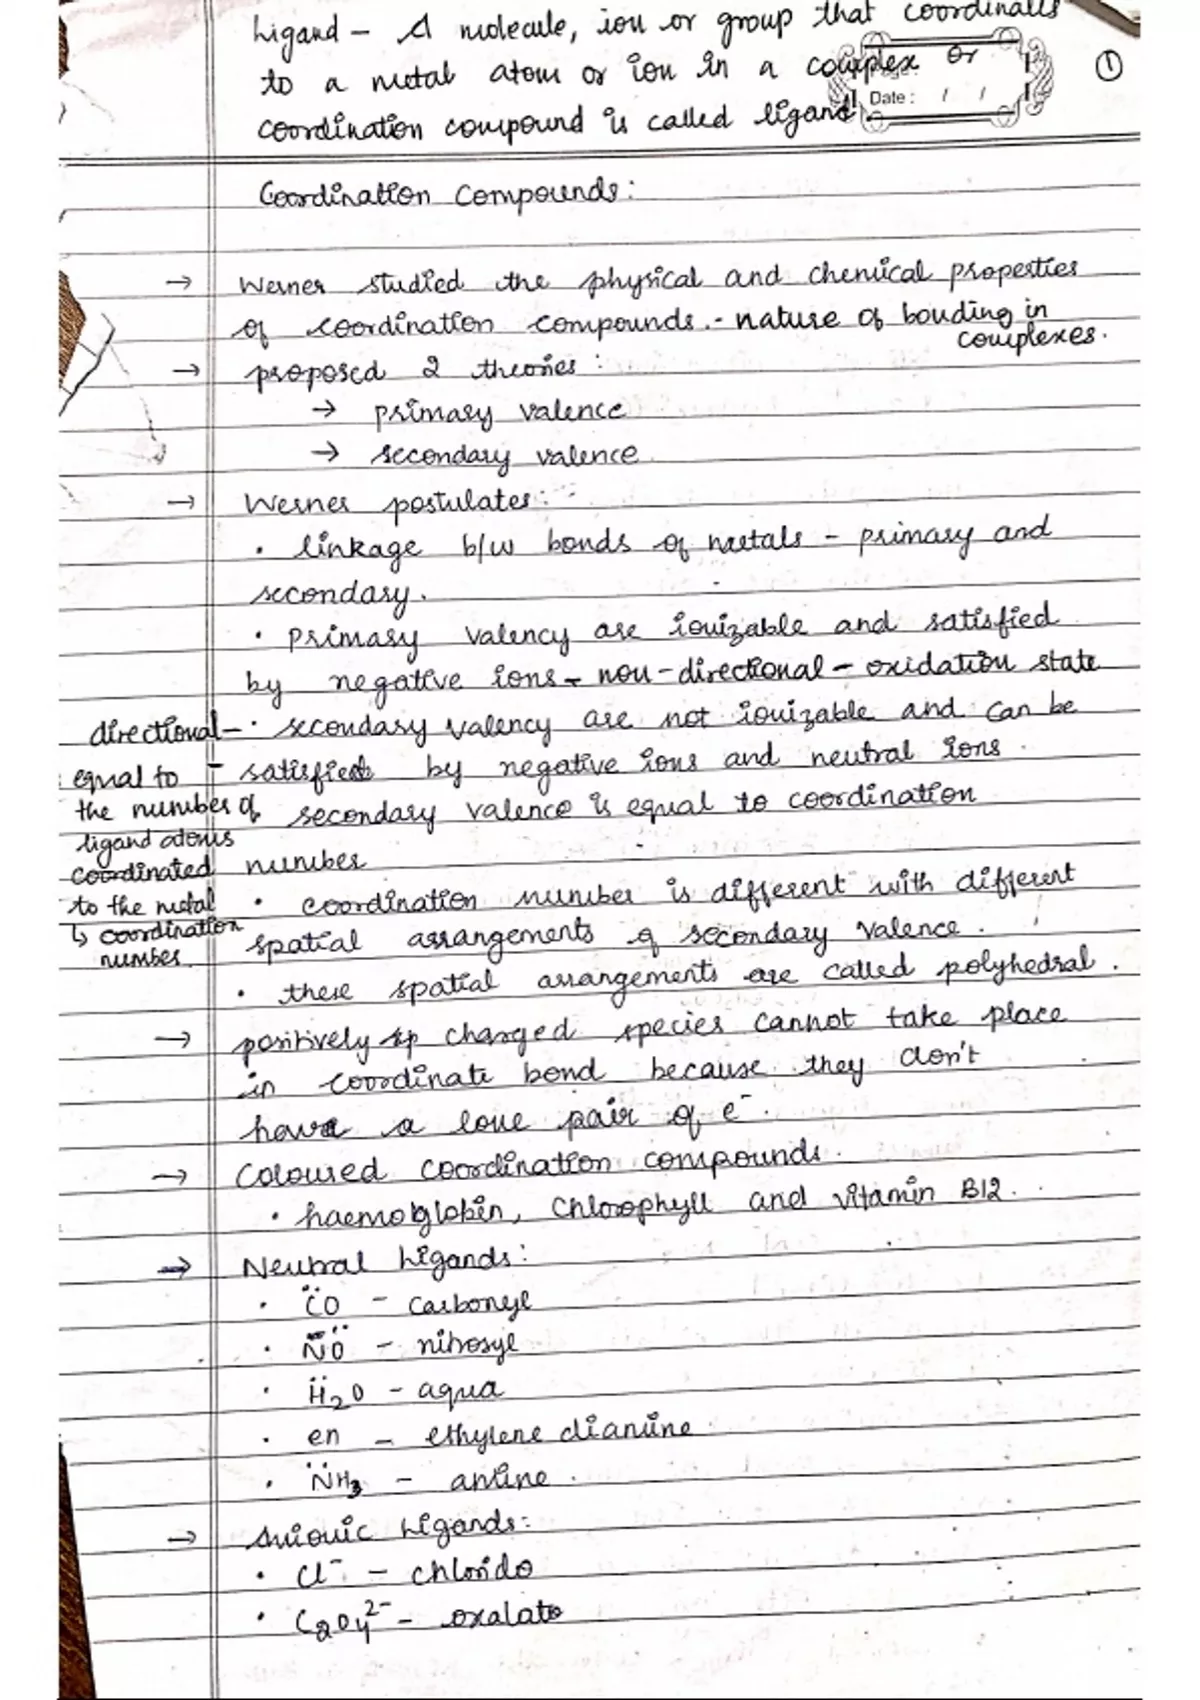 Ligand - A molecule, ion or group that coordinates
to a metal atom or ion in a complex or
Date : / /
①
coordination compound is called ligand.
Coordination Compounds:
→ Werner studied the physical and chemical properties
of coordination compounds. - nature of bonding in
complexes.
→ proposed 2 theories :
→ primary valence
→ secondary valence
→ Werner postulates:
• linkage b/w bonds of metals - primary and
secondary.
• primary valency are ionizable and satisfied
by negative ions - non-directional - oxidation state
directional - • secondary valency are not ionizable and can be
equal to - satisfied by negative ions and neutral ions.
the number of secondary valence is equal to coordination
ligand atoms
coordinated number
to the metal • coordination number is different with different
↳ coordination spatial arrangements of secondary valence.
number
• these spatial arrangements are called polyhedral.
→ positively sp charged species cannot take place
in coordinate bond because they don't
have a lone pair of e⁻.
→ Coloured coordination compounds.
• haemoglobin, Chlorophyll and vitamin B12.
→ Neutral Ligands:
• CO - carbonyl
• NO - nitrosyl
• H₂O - aqua
• en - ethylene diamine
• NH₃ - amine.
→ Anionic Ligands:
• Cl⁻ - chlorido
• C₂O₄²⁻ - oxalato